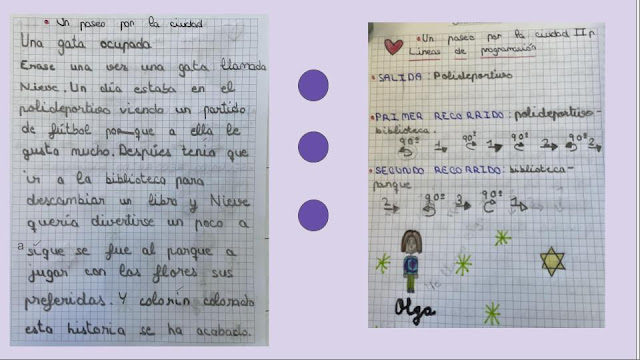 • Un paseo por la ciudad
Una gata ocupada
Erase una vez una gata llamada
Nieve. Un día estaba en el
polideportivo viendo un partido
de fútbol porque a ella le
gusta mucho. Despúes tenía que
ir a la biblioteca para
descambiar un libro y Nieve
quería divertirse un poco a
a sígue se fue al parque a
jugar con las flores sus
preferidas. Y colorín colorado
esta historia se ha acabado.
• Un paseo por la ciudad II p.
Líneas de programación
• SALIDA: Polideportivo
• PRIMER RECORRIDO: polideportivo-
biblioteca.
90º 1 90º 1 90º 2 90º 2
• SEGUNDO RECORRIDO: biblioteca-
parque
2 90º 3 90º 1
Olga